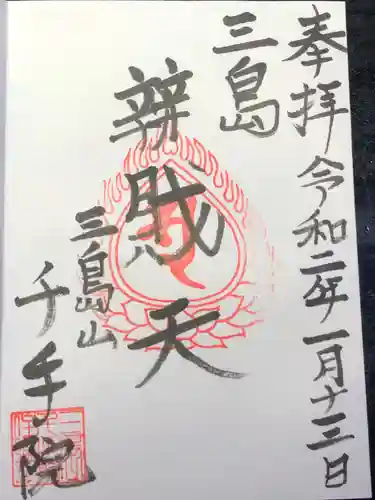 奉拝 令和二年一月十三日
三島
辨財天
三島山
千手院